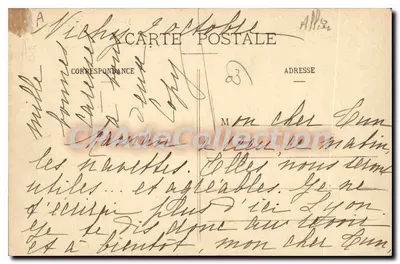 Vichy, 7 octobre
CARTE POSTALE
CORRESPONDANCE
ADRESSE
Mon cher
reçu, ce matin,
les navettes. Elles nous seront
utiles... et agréables. Je ne
t'écrirai plus d'ici Lyon.
Je te dis donc au revoir
et à bientôt, mon cher
mille
bonnes
caresses
à vous
deux